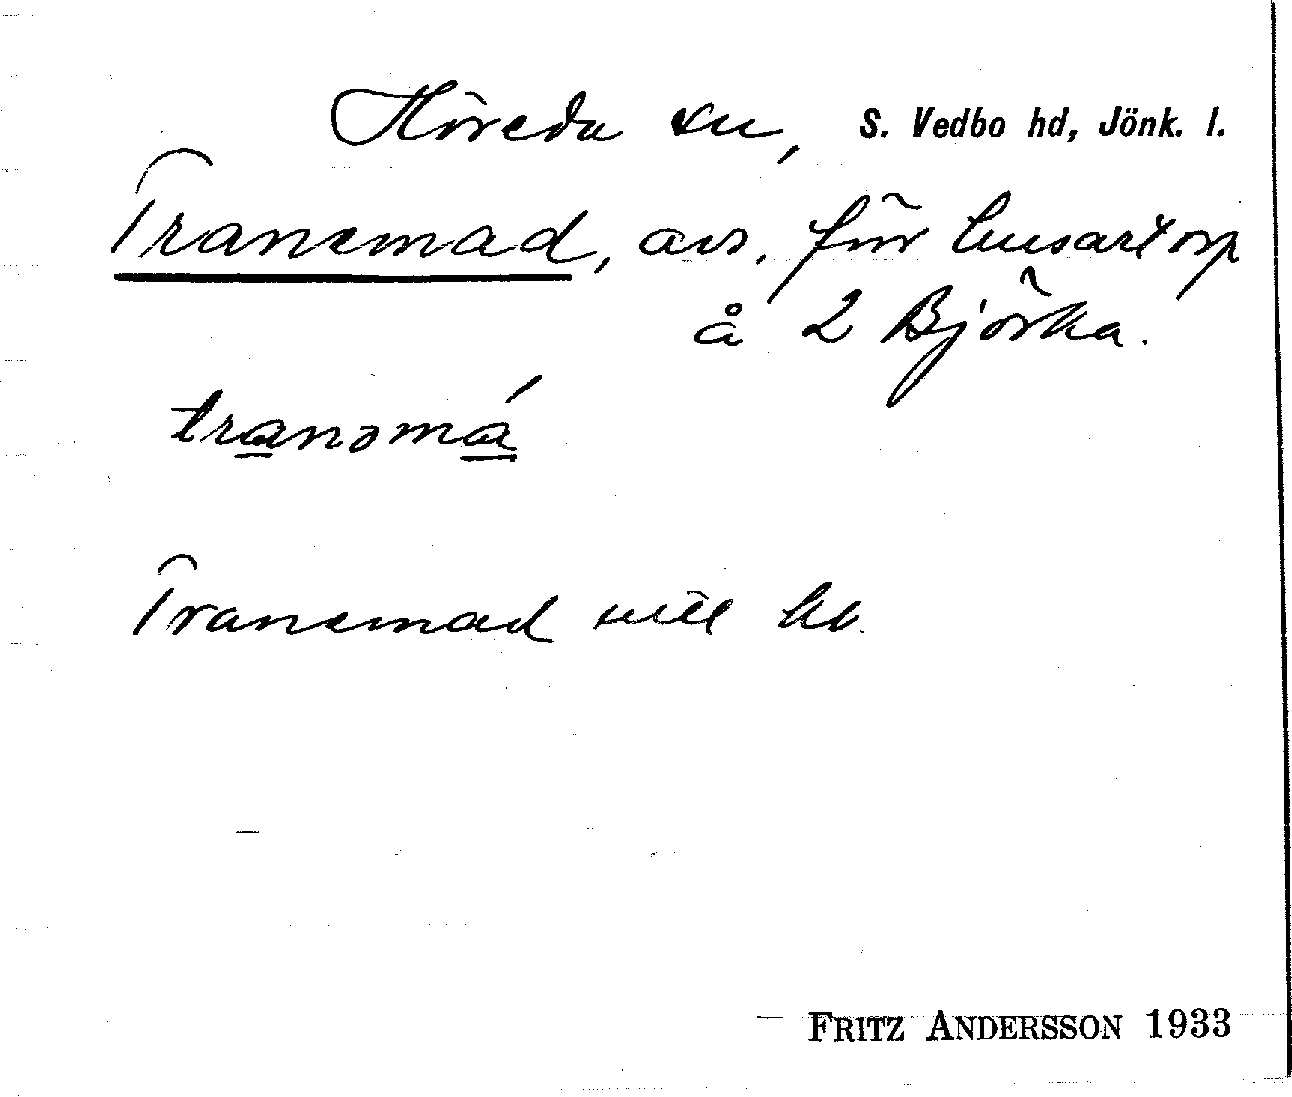 Höreda sn, S. Vedbo hd, Jönk. l.
Tranemad, avs. för husartorp
å 2 Björka.
tranəmá
Tranemad mtl kb.
FRITZ ANDERSSON 1933